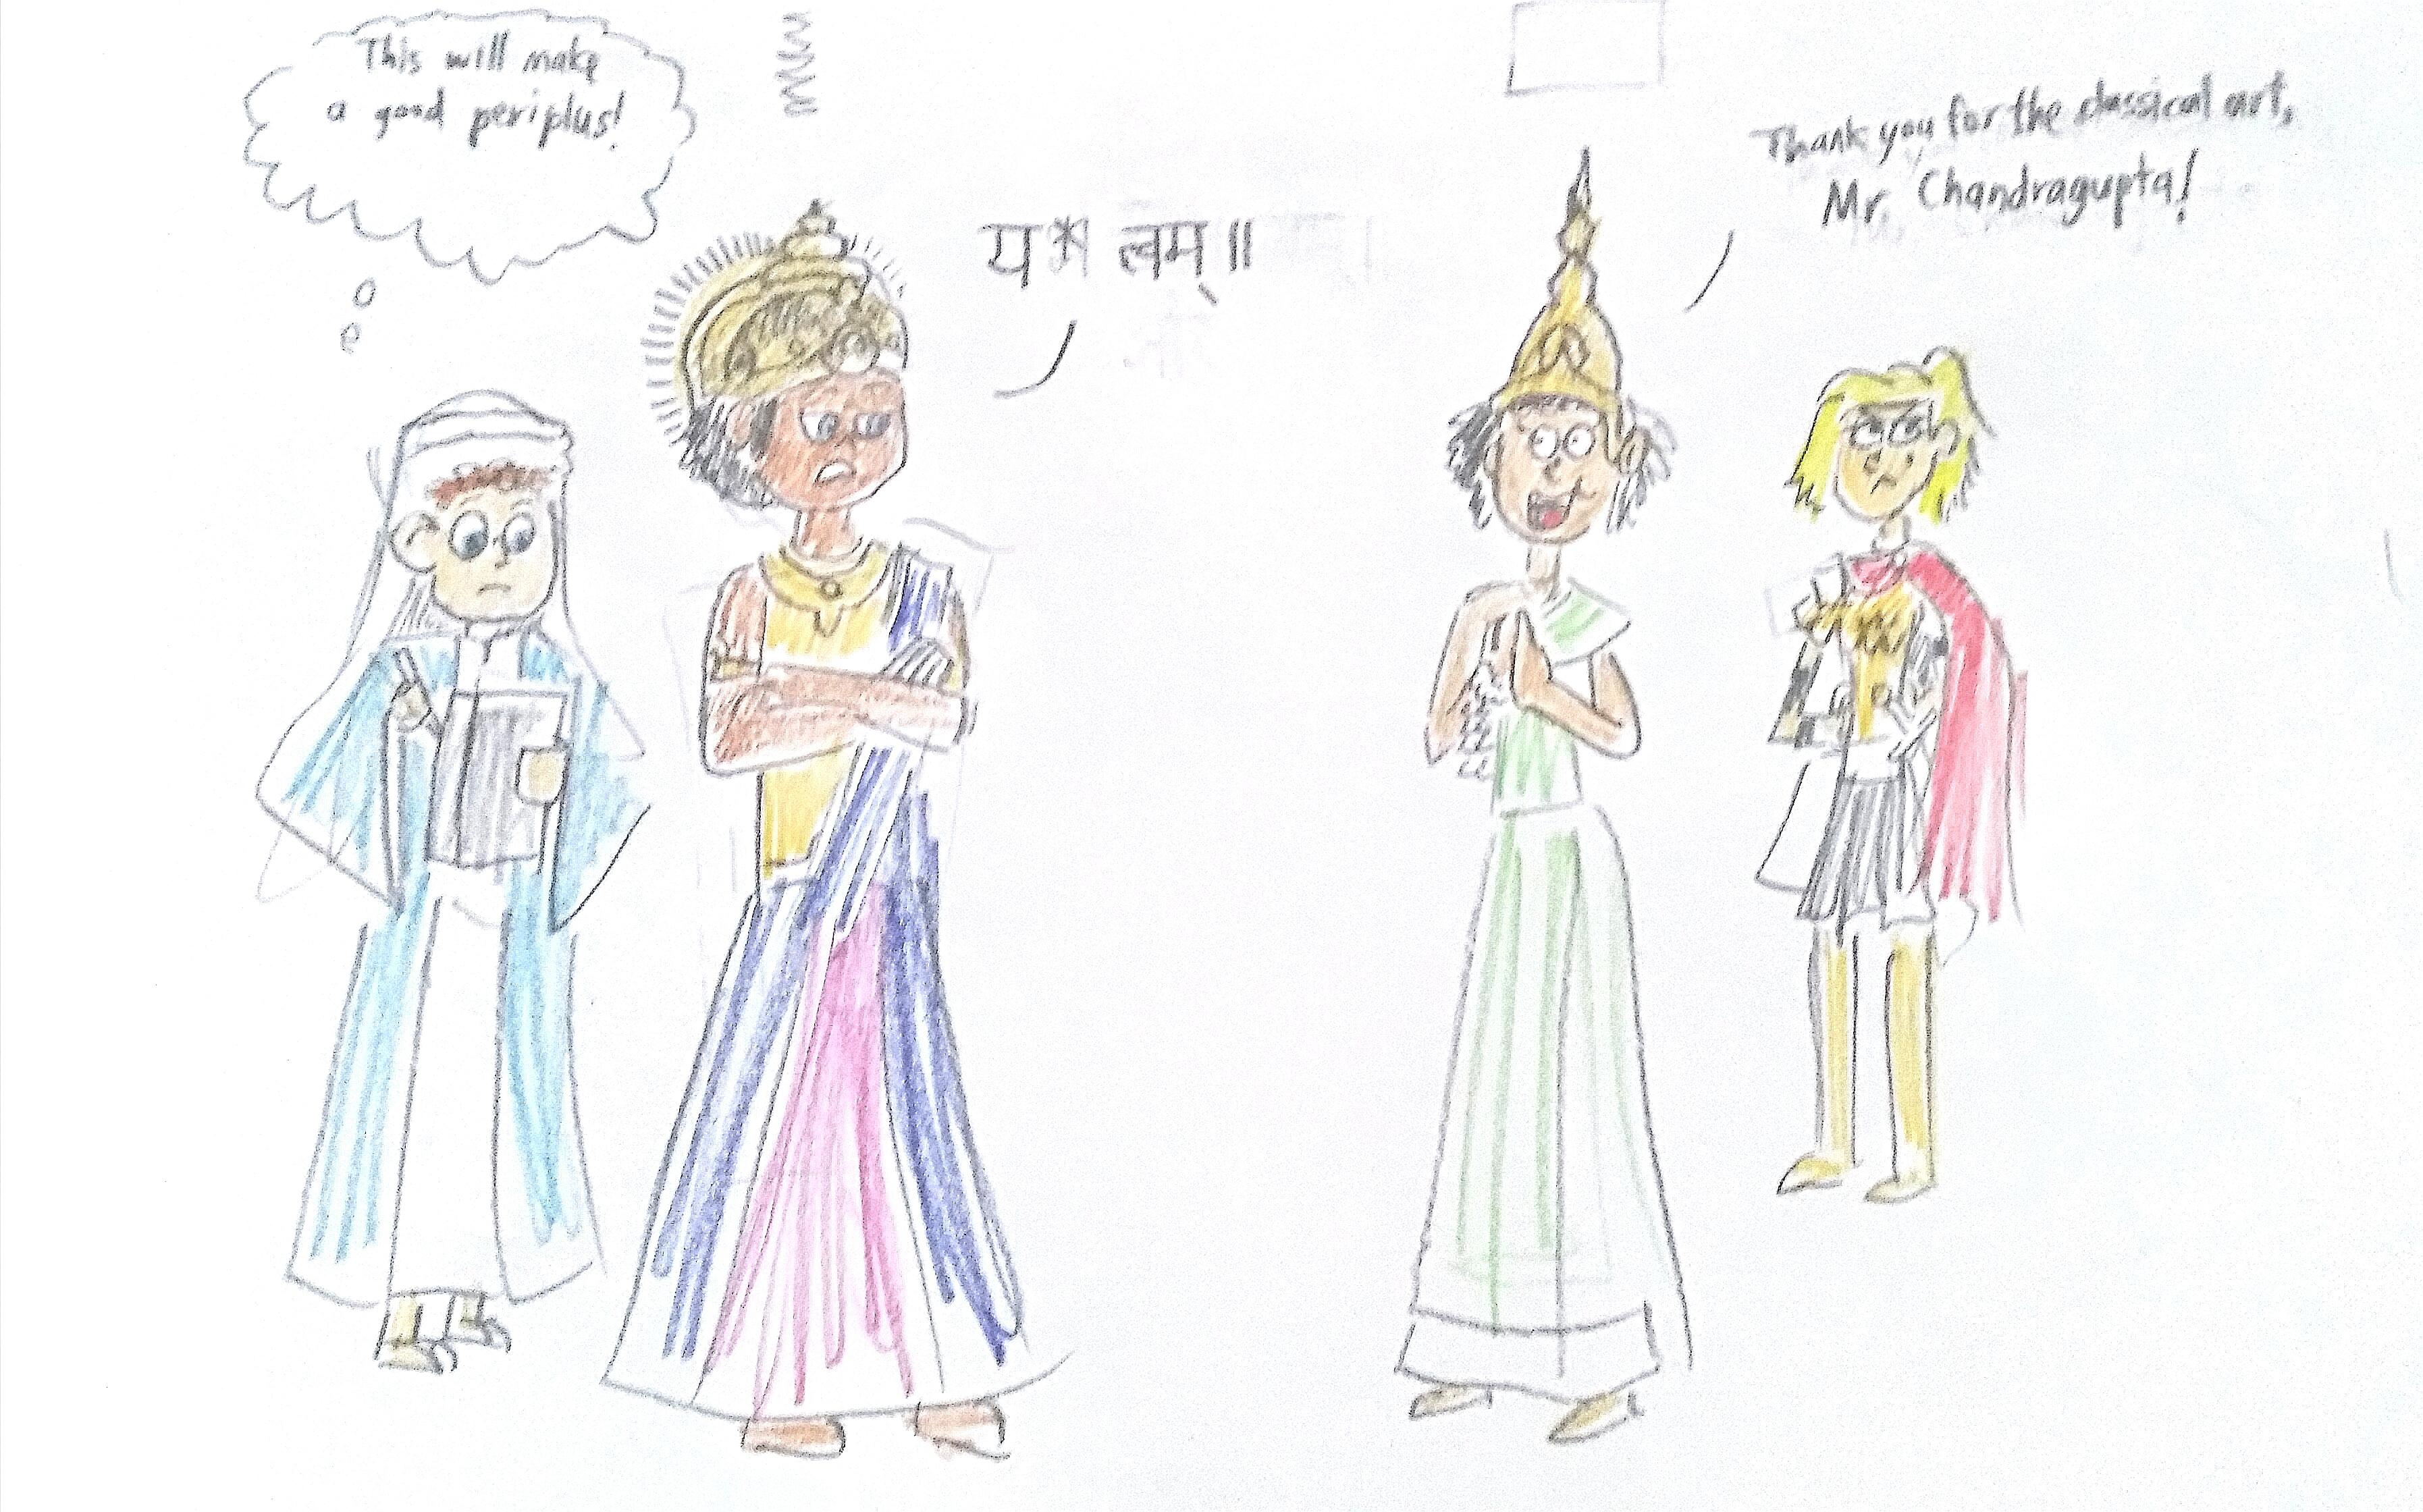 This will make
a good periplus!
त्वम्॥
Thank you for the classical art,
Mr. Chandragupta!